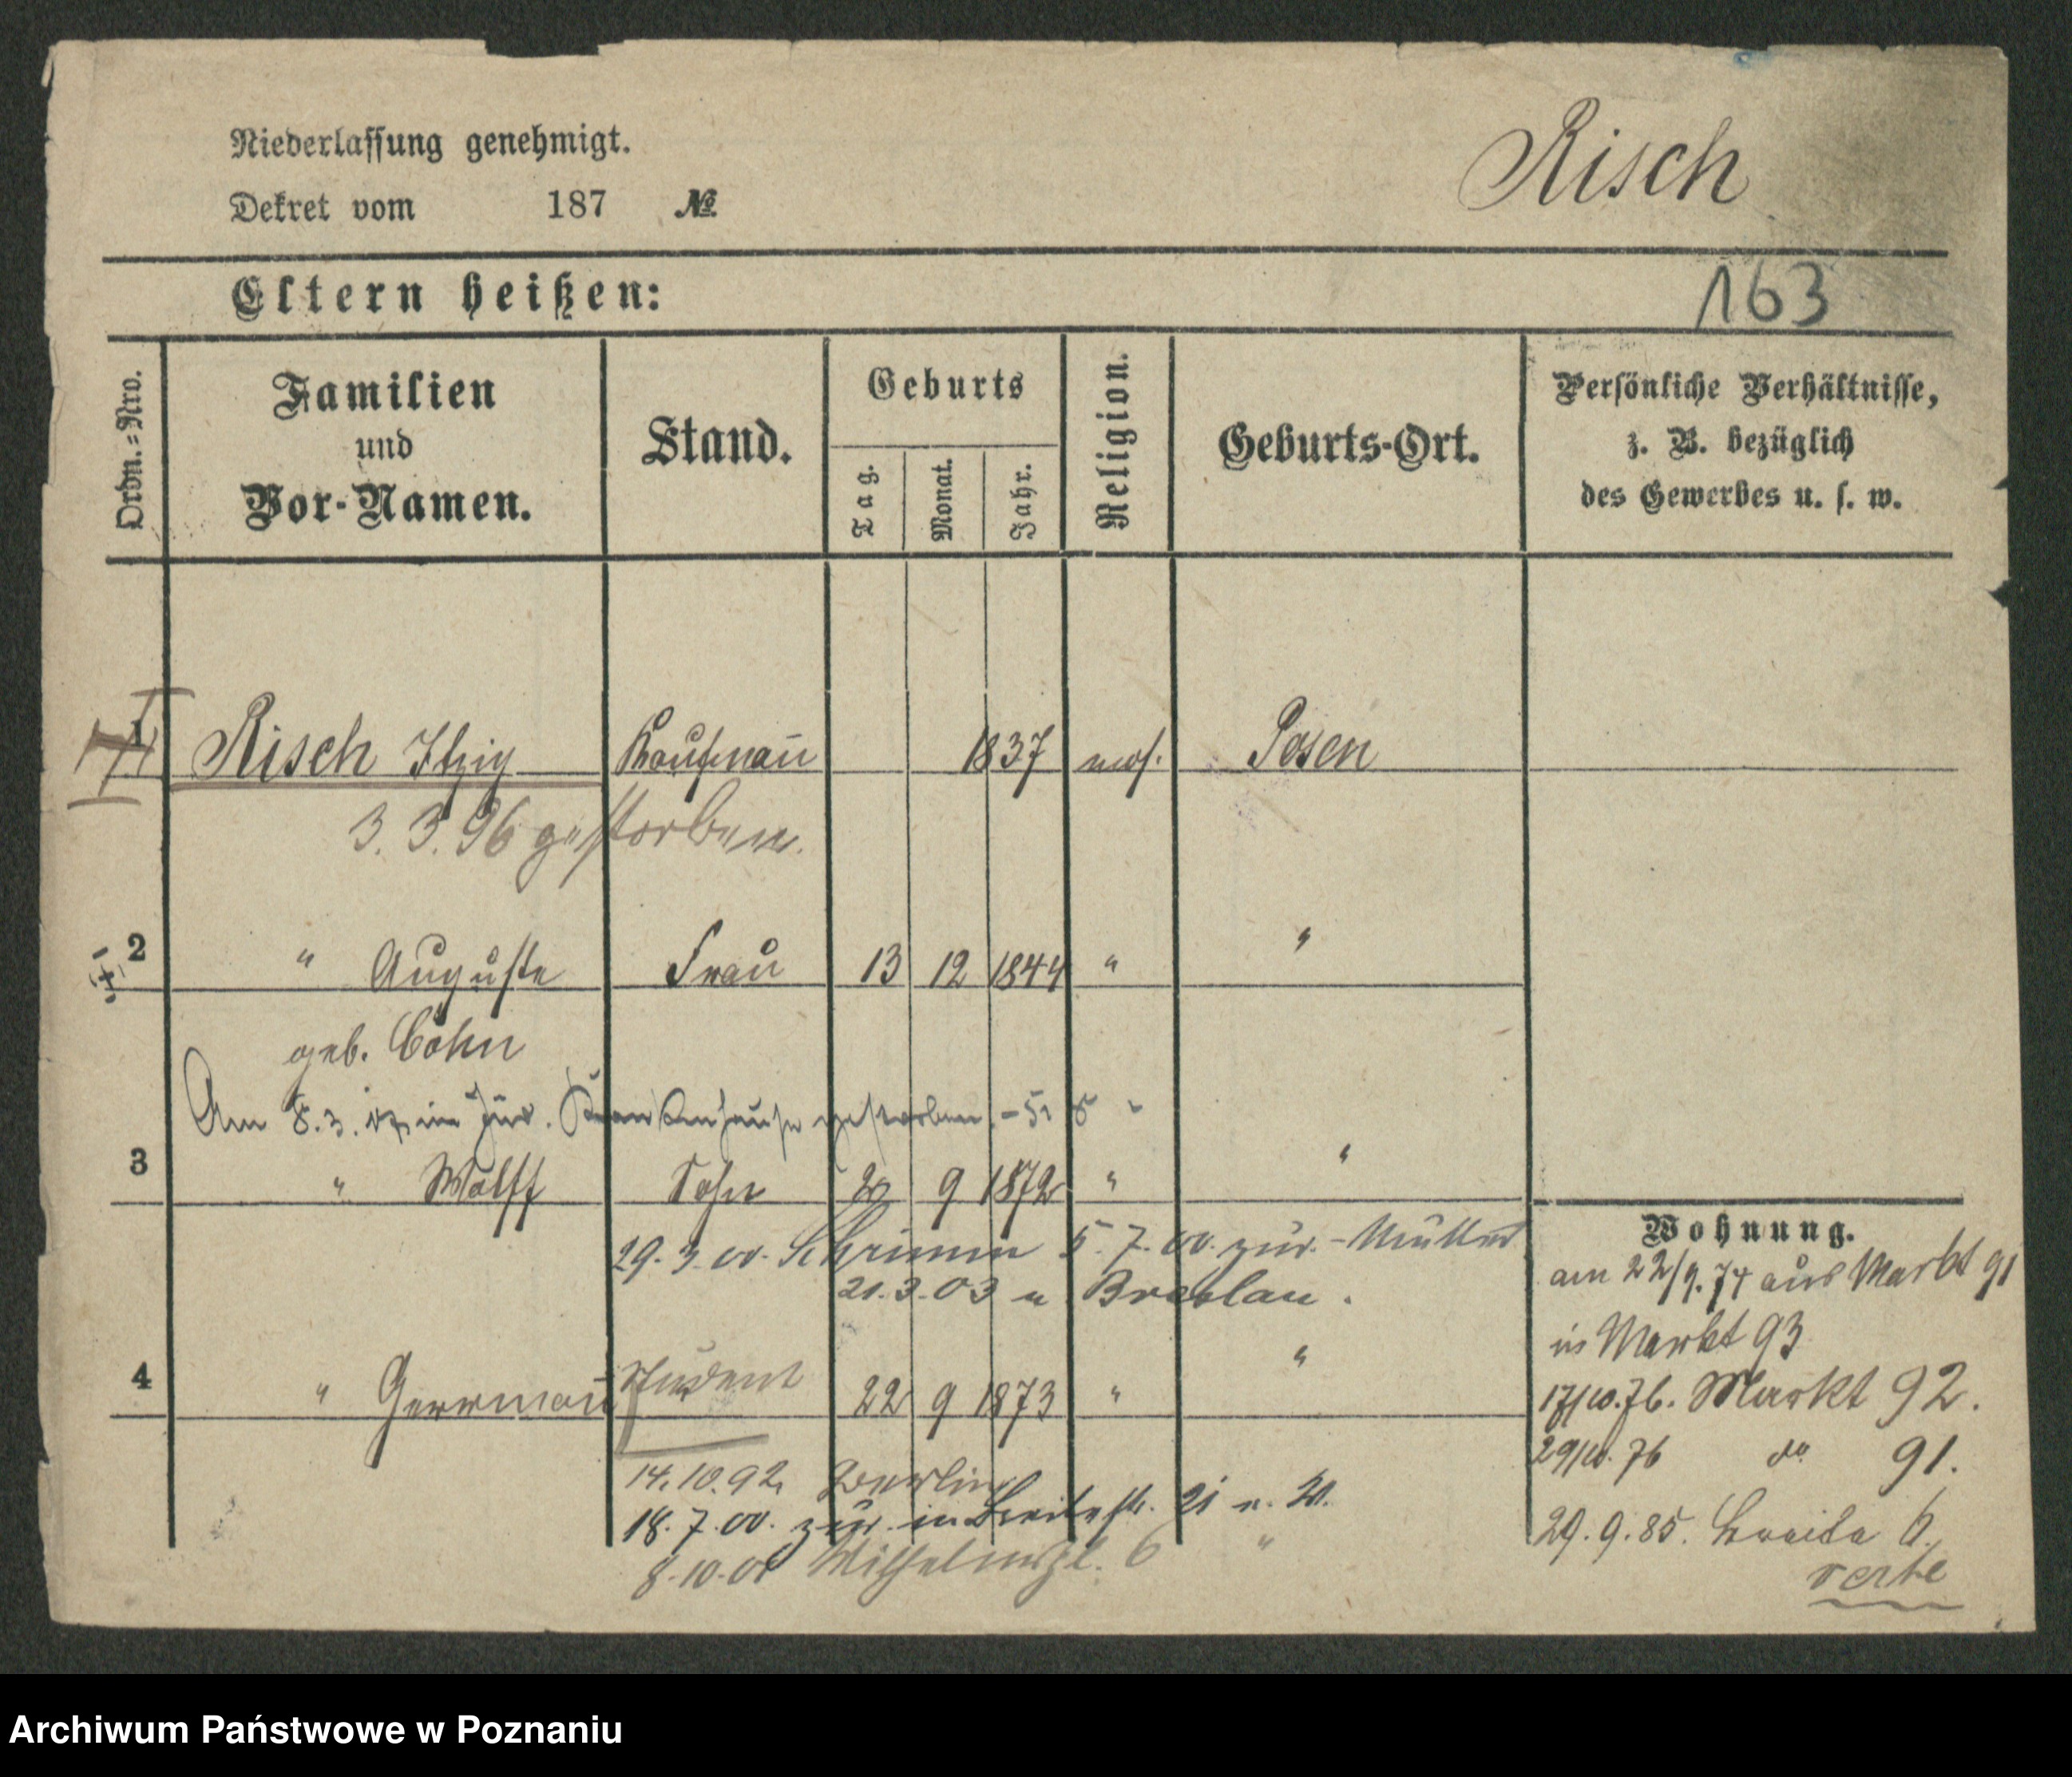 Niederlassung genehmigt.
Risch
Dekret vom 187 №
Eltern heißen:
163
Ordn.=Nro.
Familien und Vor-Namen.
Stand.
Geburts
Tag.
Monat.
Jahr.
Religion.
Geburts-Ort.
Persönliche Verhältnisse,
z. B. bezüglich
des Gewerbes u. s. w.
1 Risch Itzig Kaufmañ 1837 mos. Posen
3. 3. 96 gestorben.
2 " Auguste Frau 13 12 1844 " "
geb. Cohn
Am 8. 3. im Jüd. Krankenhause gestorben.
3 " Wolff Sohn 9 1872 " "
29. 3. 00. Schrimm 5. 7. 00. zur. - Mutter
21. 3. 03 n Breslau.
4 " Herrmañ Student 22 9 1873 " "
14. 10. 92. Berlin
18. 7. 00. zur. in Breitestr.
8. 10. Wilhelmspl. 6
Wohnung.
am 22/9. 74 aus Markt 91
in Markt 93
17/10. 76. Markt 92.
29/10. 76 do 91.
29. 9. 85. Breite 6.
verte
Archiwum Państwowe w Poznaniu